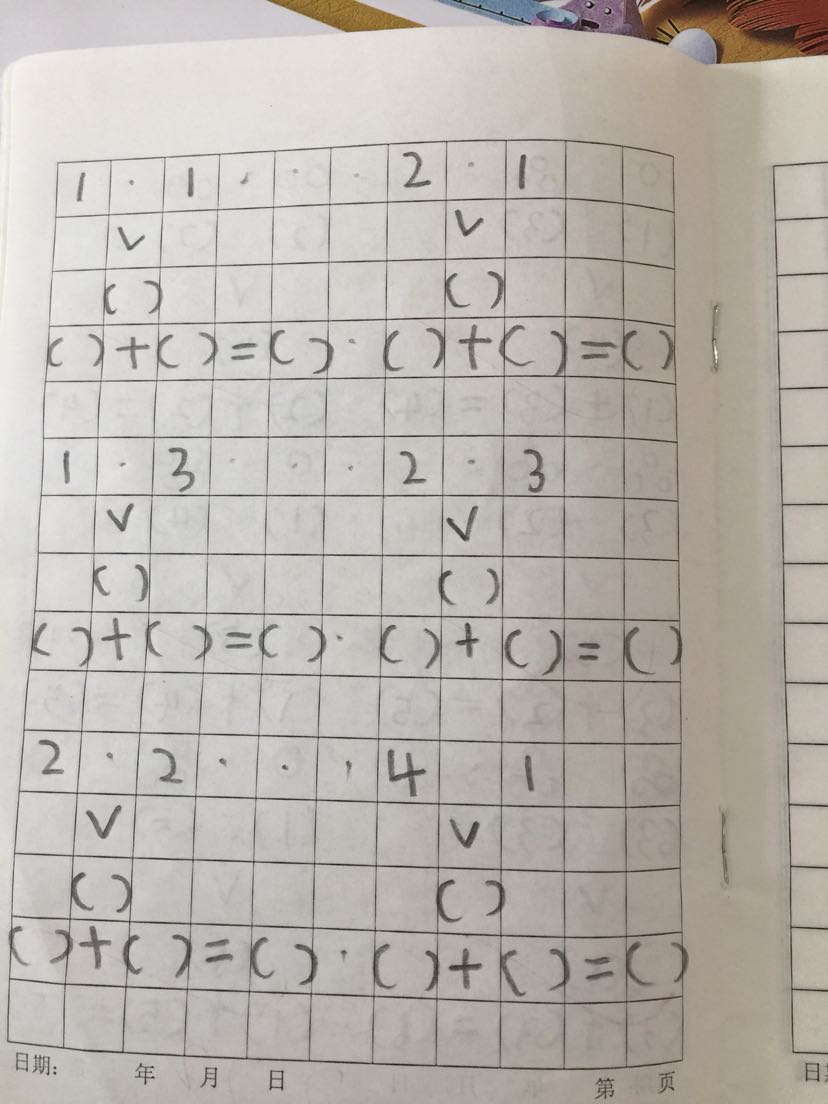 1 · 1 · · · 2 · 1
∨ ∨
( ) ( )
( ) + ( ) = ( ) · ( ) + ( ) = ( )
1 · 3 · · · 2 · 3
∨ ∨
( ) ( )
( ) + ( ) = ( ) · ( ) + ( ) = ( )
2 · 2 · · · 4 · 1
∨ ∨
( ) ( )
( ) + ( ) = ( ) · ( ) + ( ) = ( )
日期: 年 月 日 第 页